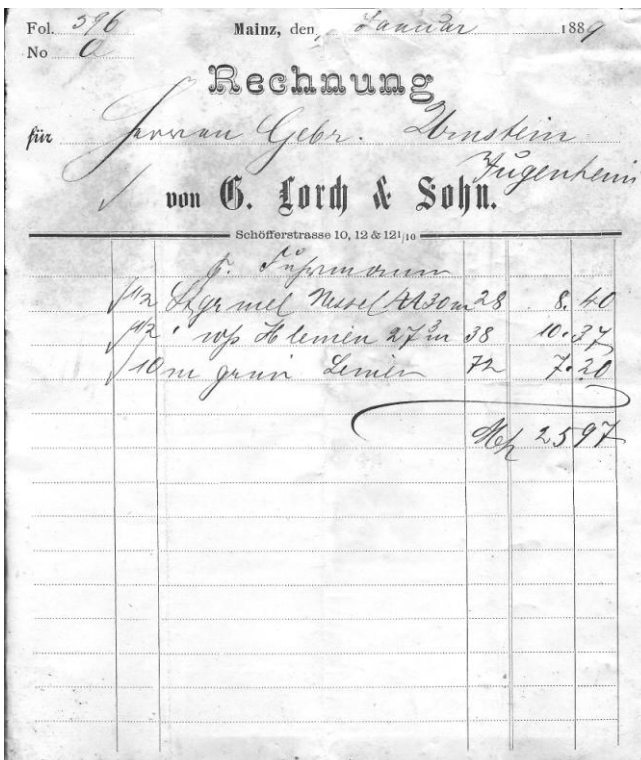 Fol. 596 Mainz, den Januar 1889
No 0
Rechnung
für Herren Gebr. Urnstein
Jugenheim
von G. Lorch & Sohn.
Schöfferstrasse 10, 12 & 12 1/10
F. Fuhrmann
1/2 Nessel 30 m 28 8.40
1/2 27 m 38 10.37
10 m grün Leinen 72 7.20
Mk 25 97